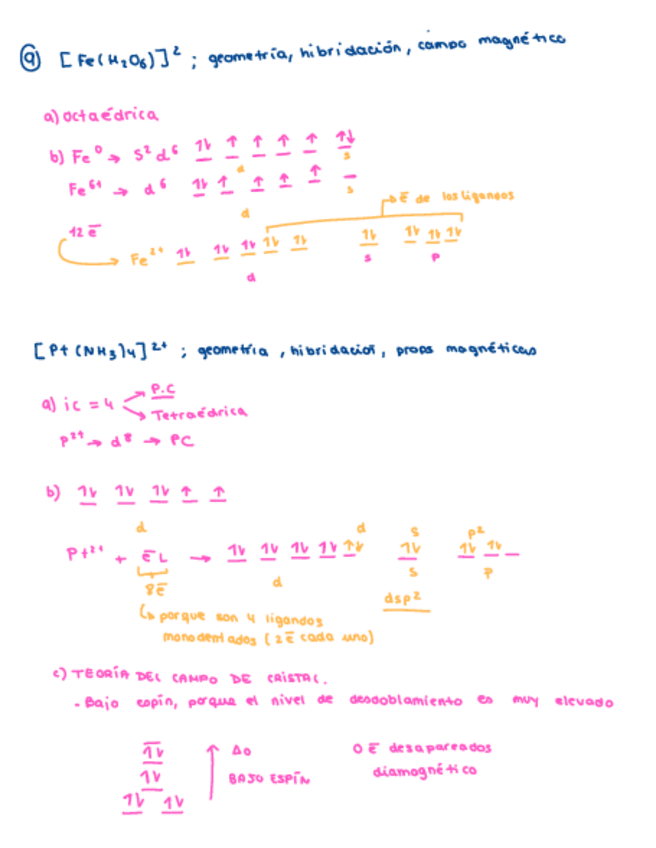 9) [Fe(H₂O₆)]² ; geometría, hibridación, campo magnético
a) octaédrica
b) Fe⁰ → s² d⁶ 1↓ ↑ ↑ ↑ ↑ ↑↓
d s
Fe⁶⁺ → d⁶ 1↓ ↑ ↑ ↑ ↑ _
d s
→ ē de los ligandos
12 ē
Fe²⁺ 1↓ 1↓ 1↓ 1↓ 1↓ 1↓ 1↓ 1↓ 1↓
d s p
[Pt(NH₃)₄]²⁺ ; geometría, hibridación, props magnéticas
a) ic = 4 → P.C
→ Tetraédrica
P²⁺ → d⁸ → PC
b) 1↓ 1↓ 1↓ ↑ ↑
d
d s p²
Pt²⁺ + ē L → 1↓ 1↓ 1↓ 1↓ ↑↓ 1↓ 1↓ 1↓ _
8ē d s p
dsp²
↳ porque son 4 ligandos
monodentados (2ē cada uno)
c) TEORÍA DEL CAMPO DE CRISTAL.
- Bajo espín, porque el nivel de desdoblamiento es muy elevado
1↓
1↓
1↓ 1↓
↑ Δo
BAJO ESPÍN
0 ē desapareados
diamagnético